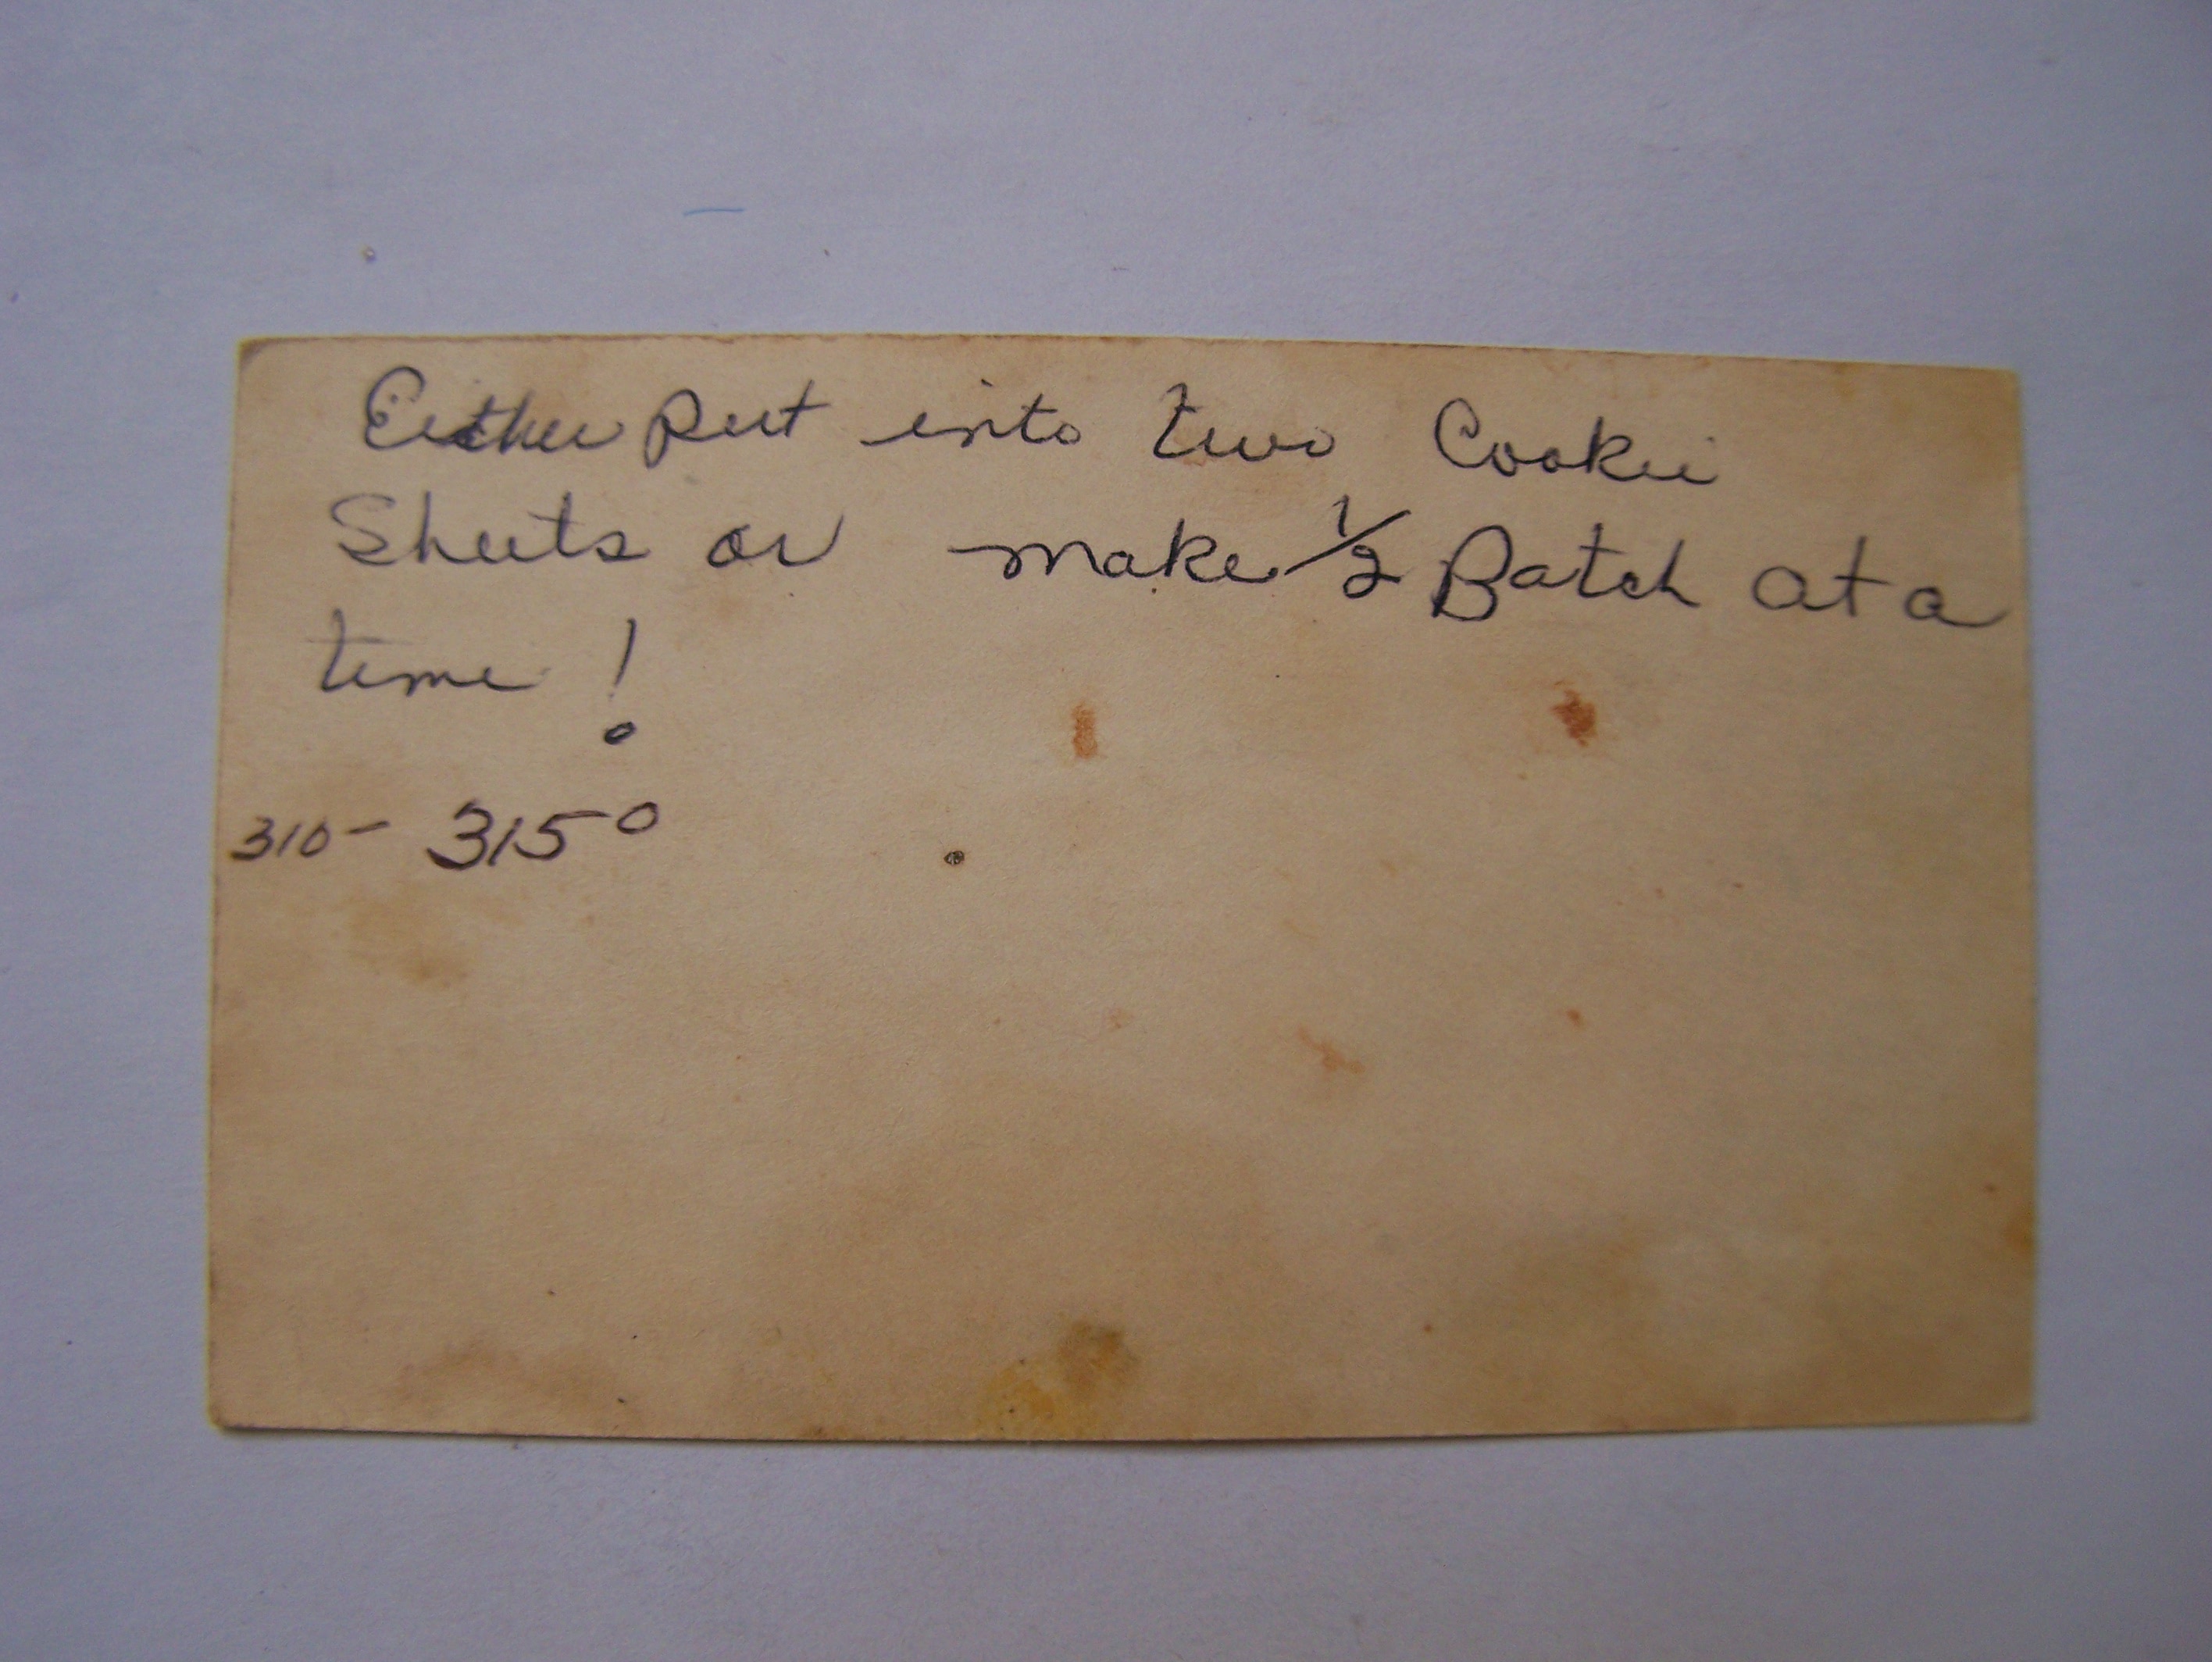 Either put into two Cookie
Sheets or make 1/2 Batch at a
time!
310- 315°